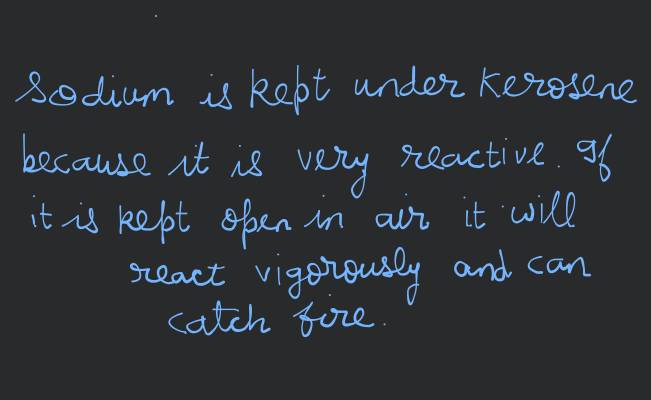 Sodium is kept under kerosene
because it is very reactive. If
it is kept open in air it will
react vigorously and can
catch fire.